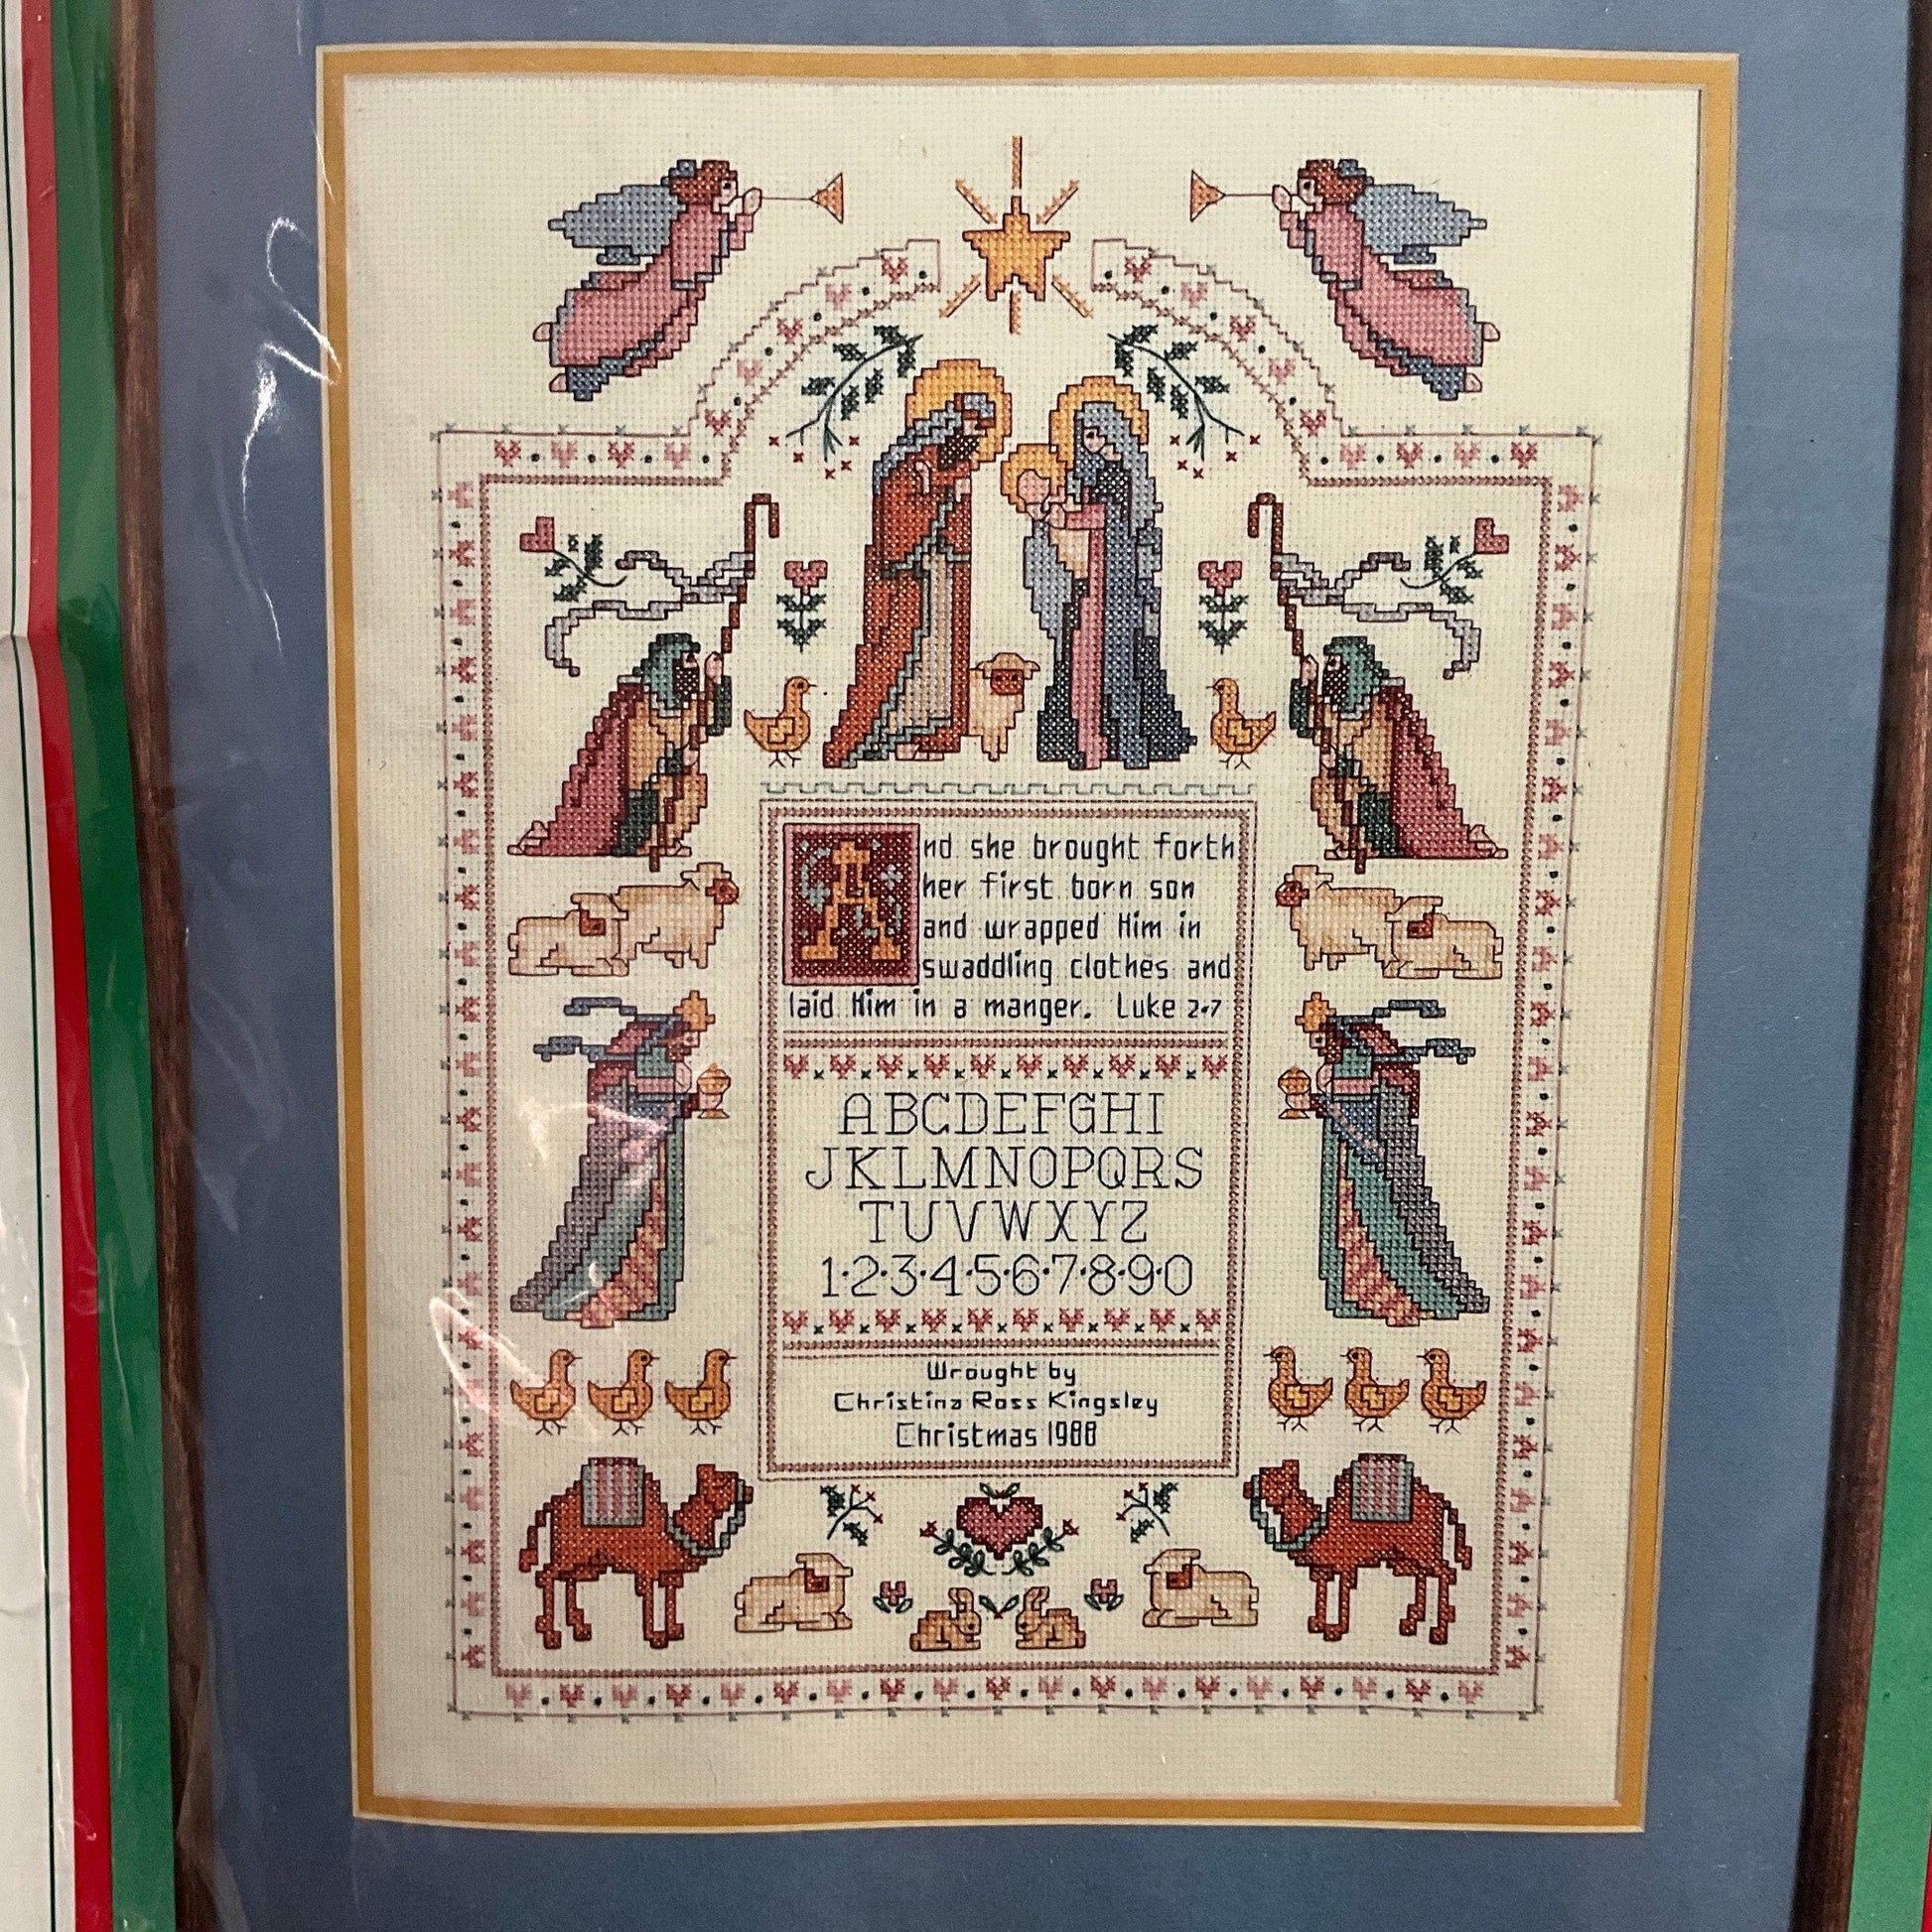 And she brought forth
her first born son
and wrapped Him in
swaddling clothes and
laid Him in a manger. Luke 2•7
ABCDEFGHI
JKLMNOPQRS
TUVWXYZ
1•2•3•4•5•6•7•8•9•0
Wrought by
Christina Ross Kingsley
Christmas 1988